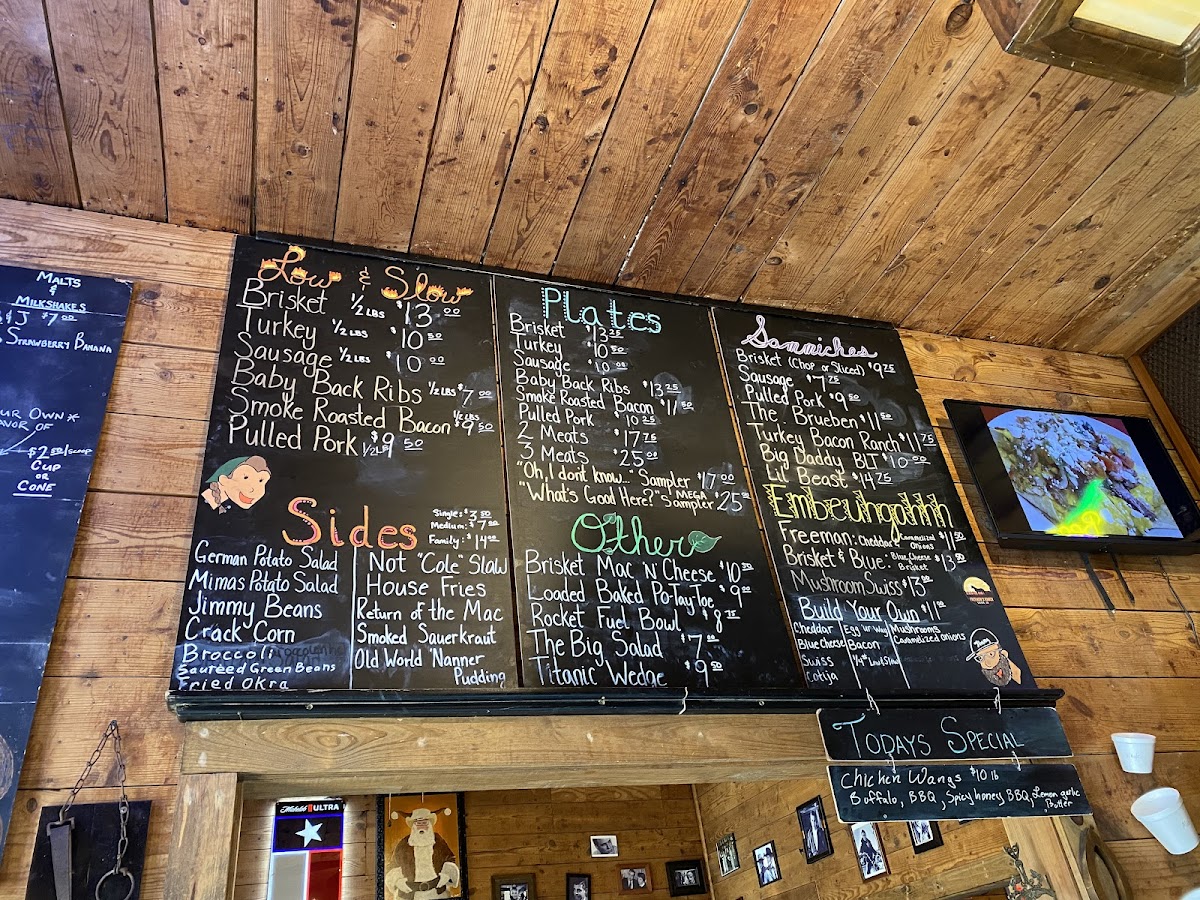 MALTS
&
MILKSHAKES
& J $7.00
STRAWBERRY BANANA
UR OWN *
AVOR OF
$2.50/scoop
CUP
OR
CONE
Low & Slow
Brisket 1/2 LBS $13.00
Turkey 1/2 LBS $10.50
Sausage 1/2 LBS $10.00
Baby Back Ribs 1/2 LBS $7.00
Smoke Roasted Bacon 1/2 LBS $9.50
Pulled Pork 1/2 LB $9.50
Sides
Single: $3.50
Medium: $7.00
Family: $14.00
German Potato Salad
Mimas Potato Salad
Jimmy Beans
Crack Corn
Broccoli
Sautéed Green Beans
Fried Okra
Not "Cole" Slaw
House Fries
Return of the Mac
Smoked Sauerkraut
Old World 'Nanner
Pudding
Plates
Brisket $13.25
Turkey 10.50
Sausage $10.00
Baby Back Ribs $13.25
Smoke Roasted Bacon $11.50
Pulled Pork $10.25
2 Meats $17.75
3 Meats $25.00
"Oh, I dont know..." Sampler $17.00
"What's Good Here?" MEGA Sampler $25.00
Other
Brisket Mac N Cheese $10.50
Loaded Baked Po-Tay-Toe $9.00
Rocket Fuel Bowl $8.75
The Big Salad $7.00
Titanic Wedge $9.50
Sammiches
Brisket (Chop or Sliced) $9.75
Sausage $7.75
Pulled Pork $9.50
The Brueben $11.50
Turkey Bacon Ranch $11.75
Big Daddy BLT $10.00
Lil Beast $14.75
Embeuhgahhh
Freeman: Cheddar, Caramelized Onions $11.50
Brisket & Blue: Blue Cheese, Brisket $13.50
Mushroom Swiss $13.00
Build Your Own $11.00
Cheddar
Blue Cheese
Swiss
Cotija
Egg ur way
Bacon
Mushrooms
Caramelized onions
TODAYS SPECIAL
Chicken Wangs $10 lb
Buffalo, BBQ, Spicy honey BBQ, Lemon garlic
Butter
Michelob ULTRA